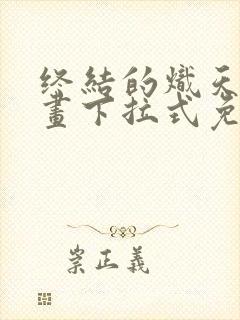 终结的炽天
畫下拉式免
崇正義